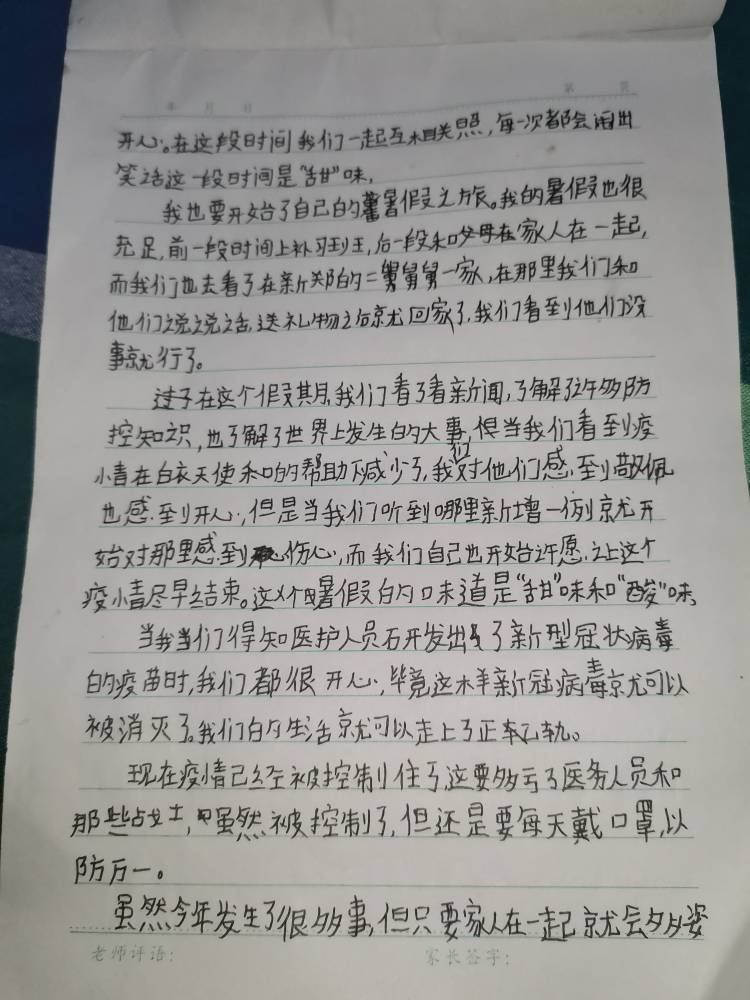 年 月 日 第 页
开心。在这段时间我们一起互相关照,每一次都会闹出
笑话这一段时间是“甜”味.
我也要开始了自己的暑假之旅。我的暑假也很
充足,前一段时间上补习班,后一段和父母在家人在一起,
而我们也去看了在新郑的二舅舅一家,在那里我们和
他们说说话,送礼物之后就回家了,我们看到他们没
事就行了。
过于在这个假期,我们看了看新闻,了解了许多防
控知识,也了解了世界上发生的大事,但当我们看到疫
情在白衣天使和的帮助下减少了,我们对他们感到敬佩
也感到开心,但是当我们听到哪里新增一例就开
始对那里感到伤心,而我们自己也开始许愿,让这个
疫情尽早结束。这个暑假的口味道是“甜”味和“酸”味,
当我当们得知医护人员研发出了新型冠状病毒
的疫苗时,我们都很开心,毕竟这样新冠病毒就可以
被消灭了。我们的生活就可以走上了正轨。
现在疫情已经被控制住了,这要多亏了医务人员和
那些战士,虽然被控制了,但还是要每天戴口罩,以
防万一。
虽然今年发生了很多事,但只要家人在一起就会多姿
老师评语: 家长签字: